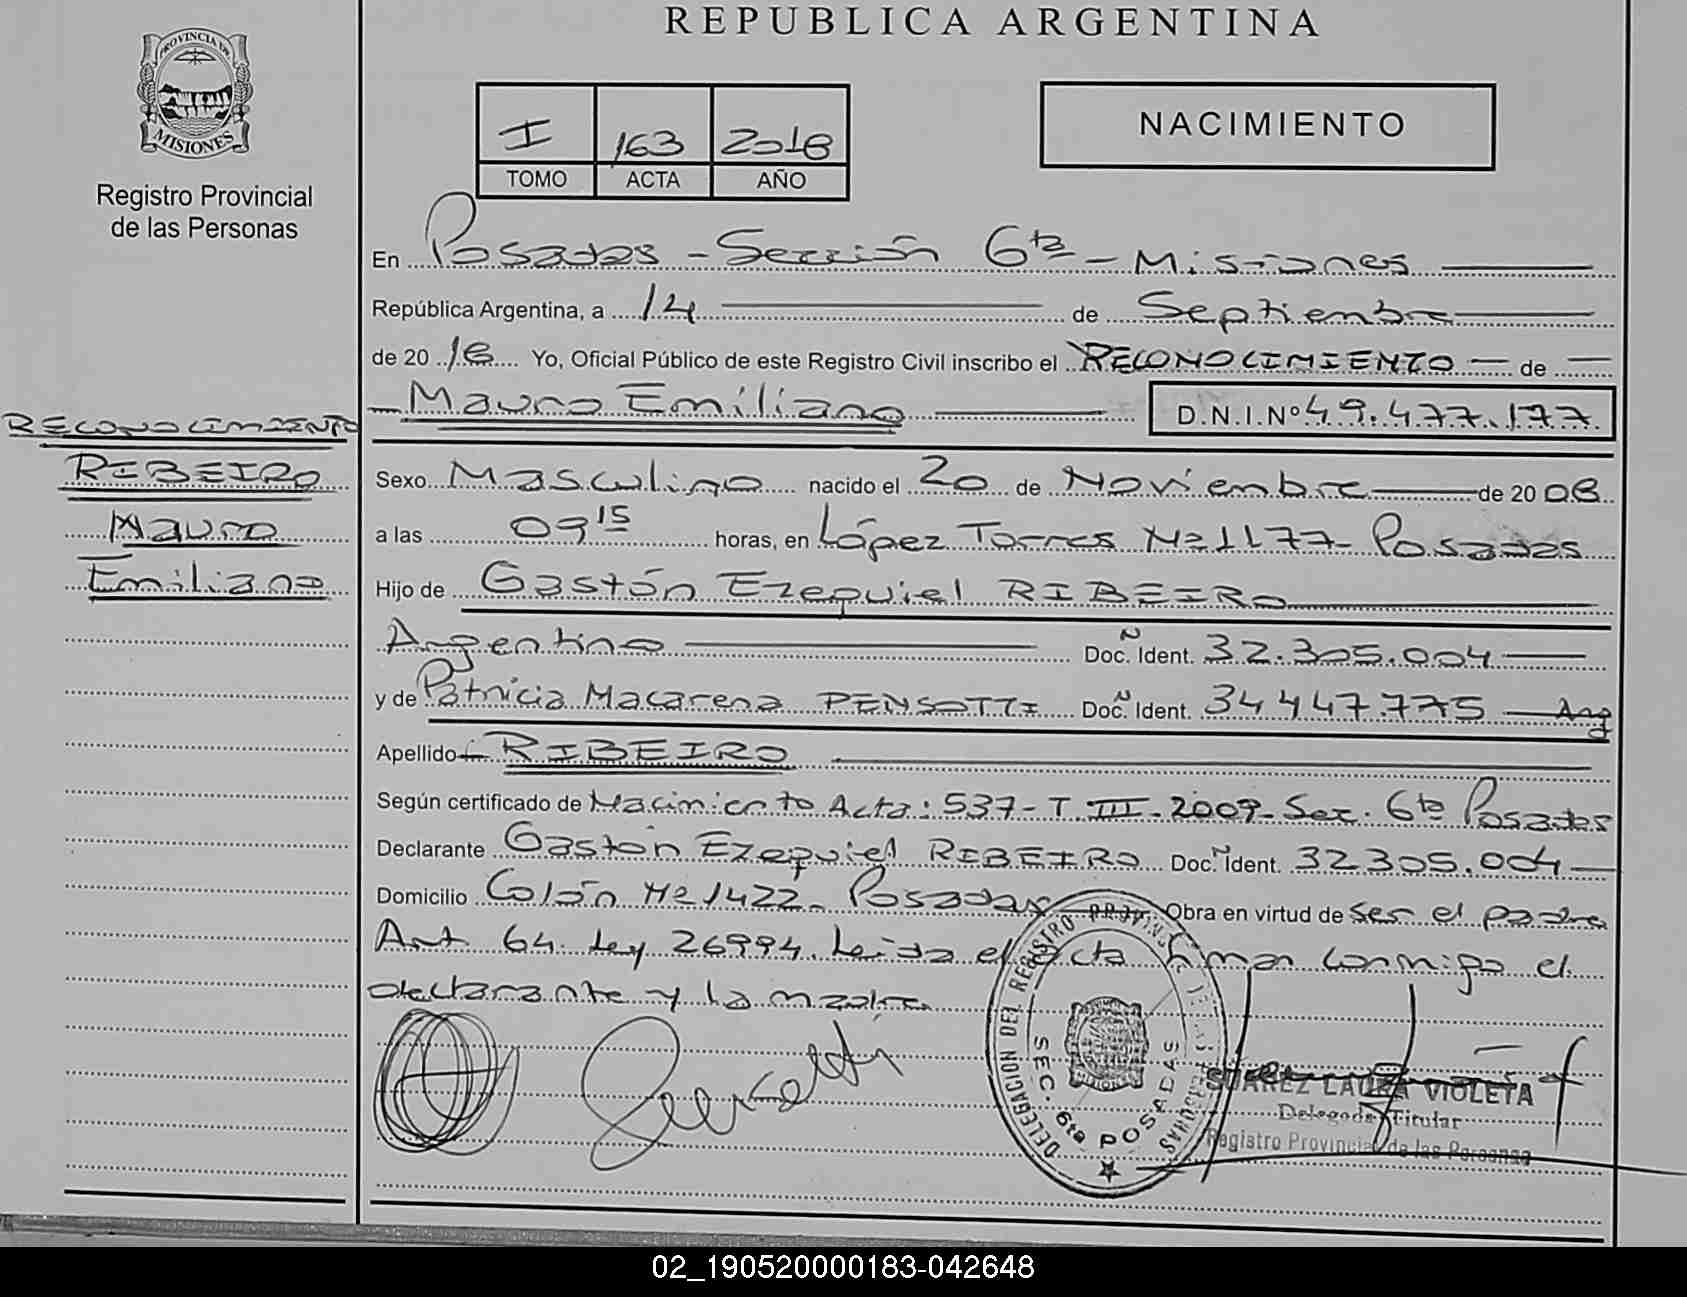 REPUBLICA ARGENTINA
PROVINCIA DE
MISIONES
Registro Provincial
de las Personas
I 163 2018
TOMO ACTA AÑO
NACIMIENTO
En Posadas - Sección 6ta - Misiones
República Argentina, a 14 de Septiembre
de 2018 Yo, Oficial Público de este Registro Civil inscribo el RECONOCIMIENTO de
Mauro Emiliano D.N.I.Nº 49.477.177
RECONOCIMIENTO
RIBEIRO
Mauro
Emiliano
Sexo Masculino nacido el 20 de Noviembre de 2008
a las 09 15 horas, en López Torres Nº 1177 - Posadas
Hijo de Gastón Ezequiel RIBEIRO
Argentino Doc. Ident. 32.305.004
y de Patricia Macarena PENSOTTI Doc. Ident. 34447.775 - Arg
Apellido RIBEIRO
Según certificado de Nacimiento Acta: 537- T III - 2009- Sec. 6ta Posadas
Declarante Gastón Ezequiel RIBEIRO Doc. Ident. 32305.004
Domicilio Colón Nº 1422 - Posadas Obra en virtud de ser el padre
Art 64 Ley 26994. Leida el acta firman conmigo el
declarante y la madre
DELEGACION DEL REGISTRO PROVINCIAL DE LAS PERSONAS
SEC. 6ta POSADAS
SUAREZ LAURA VIOLETA
Delegada Titular
Registro Provincial de las Personas
02_190520000183-042648